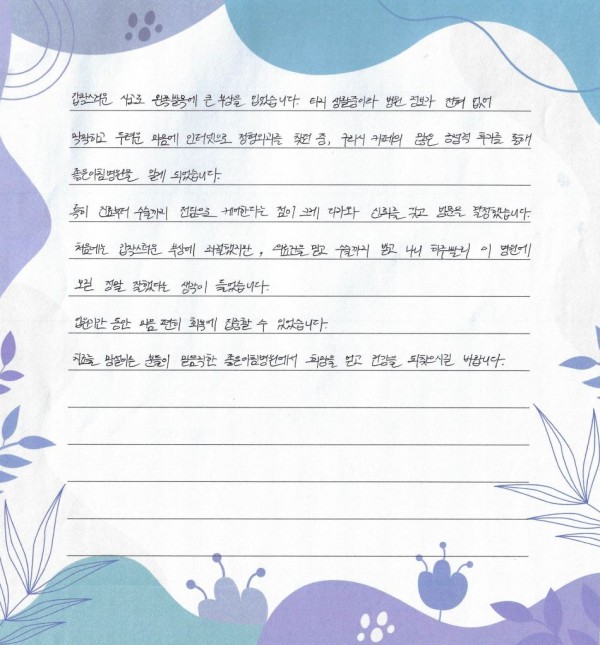 갑작스러운 사고로 왼쪽발목에 큰 부상을 입었습니다. 타지 생활중이라 병원 정보가 전혀 없어
막막하고 두려운 마음에 인터넷으로 정형외과를 찾던 중, 구리시 카페의 많은 후기를 통해
좋은아침병원을 알게 되었습니다.
특히 진료부터 수술까지 전담으로 케어한다는 점이 크게 다가와 신뢰를 갖고 방문을 결정했습니다.
처음에는 갑작스러운 부상에 좌절했지만, 믿고 수술까지 받고 나니 하루빨리 이 병원에
오길 정말 잘했다는 생각이 들었습니다.
입원기간 동안 마음 편히 회복에 집중할 수 있었습니다.
치료를 망설이는 분들이 믿음직한 좋은아침병원에서 희망을 얻고 건강을 되찾으시길 바랍니다.